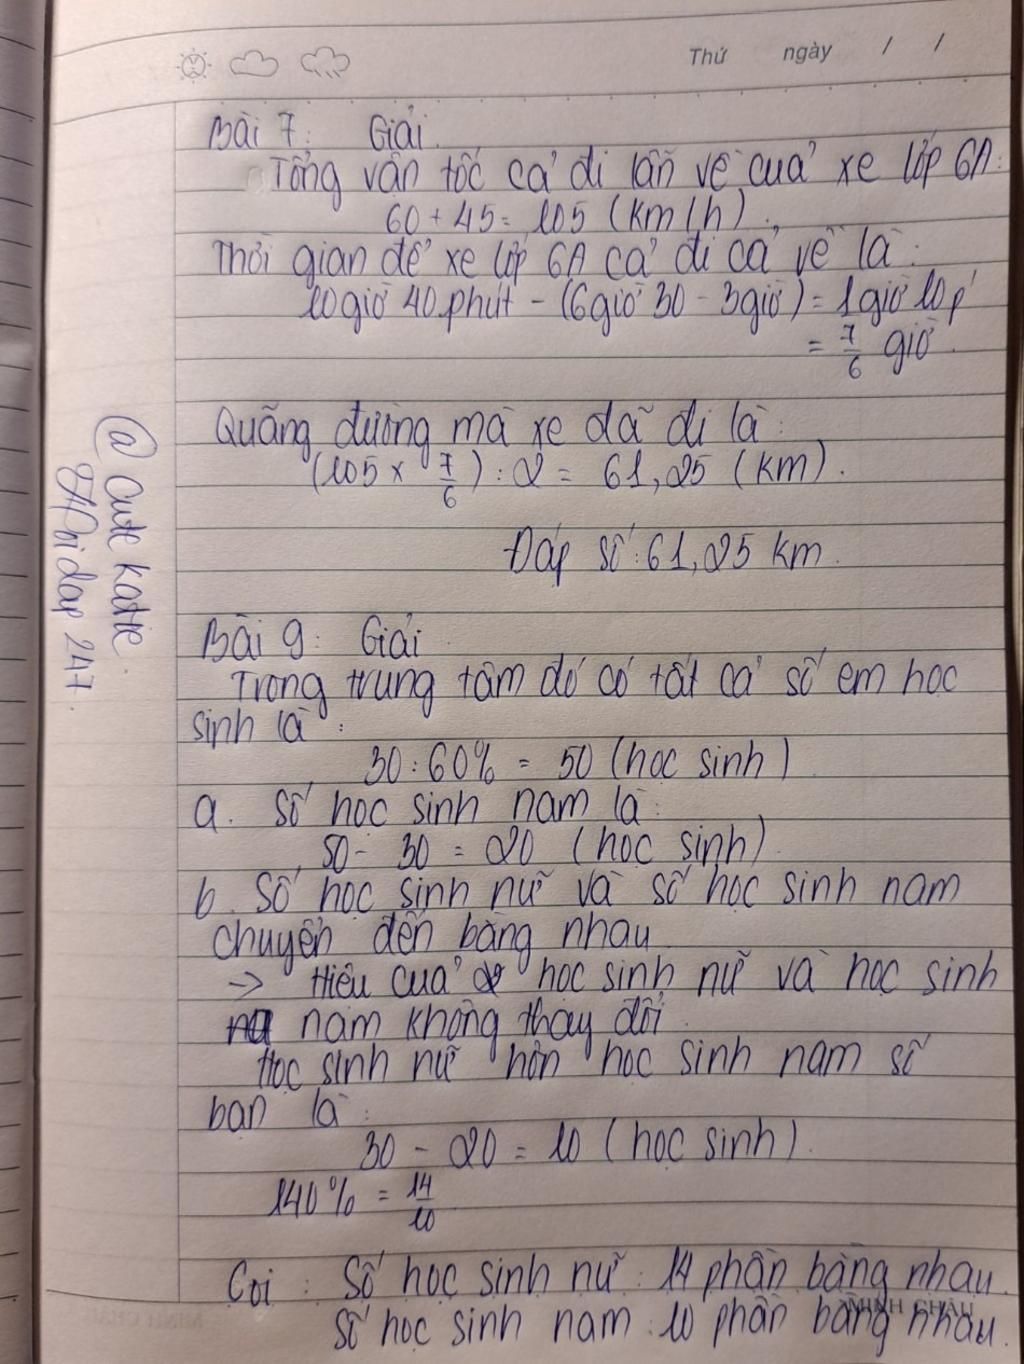 Thứ ngày / /
Bài 7: Giải.
Tổng vận tốc cả đi lẫn về của xe lớp 6A:
60 + 45 = 105 (km/h).
Thời gian để xe lớp 6A cả đi cả về là:
10 giờ 40 phút - (6 giờ 30 - 3 giờ) = 1 giờ 10 p'
= 7/6 giờ.
Quãng đường mà xe đã đi là:
(105 x 7/6) : 2 = 61,25 (km).
Đáp số: 61,25 km.
Bài 9: Giải.
Trong trung tâm đó có tất cả số em học
sinh là:
30 : 60% = 50 (học sinh)
a. Số học sinh nam là:
50 - 30 = 20 (học sinh)
b. Số học sinh nữ và số học sinh nam
chuyển đến bằng nhau
-> Hiệu của học sinh nữ và học sinh
nam không thay đổi.
Học sinh nữ hơn học sinh nam số
bạn là:
30 - 20 = 10 (học sinh).
140% = 14/10
Coi: Số học sinh nữ: 14 phần bằng nhau.
Số học sinh nam: 10 phần bằng nhau.
MINH CHÂU
@ Cute Katie